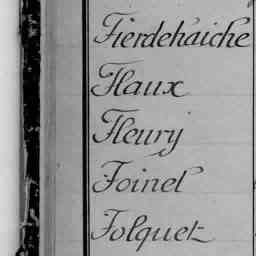 Fierdehaiche
Flaux
Fleury
Foinel
Folquet